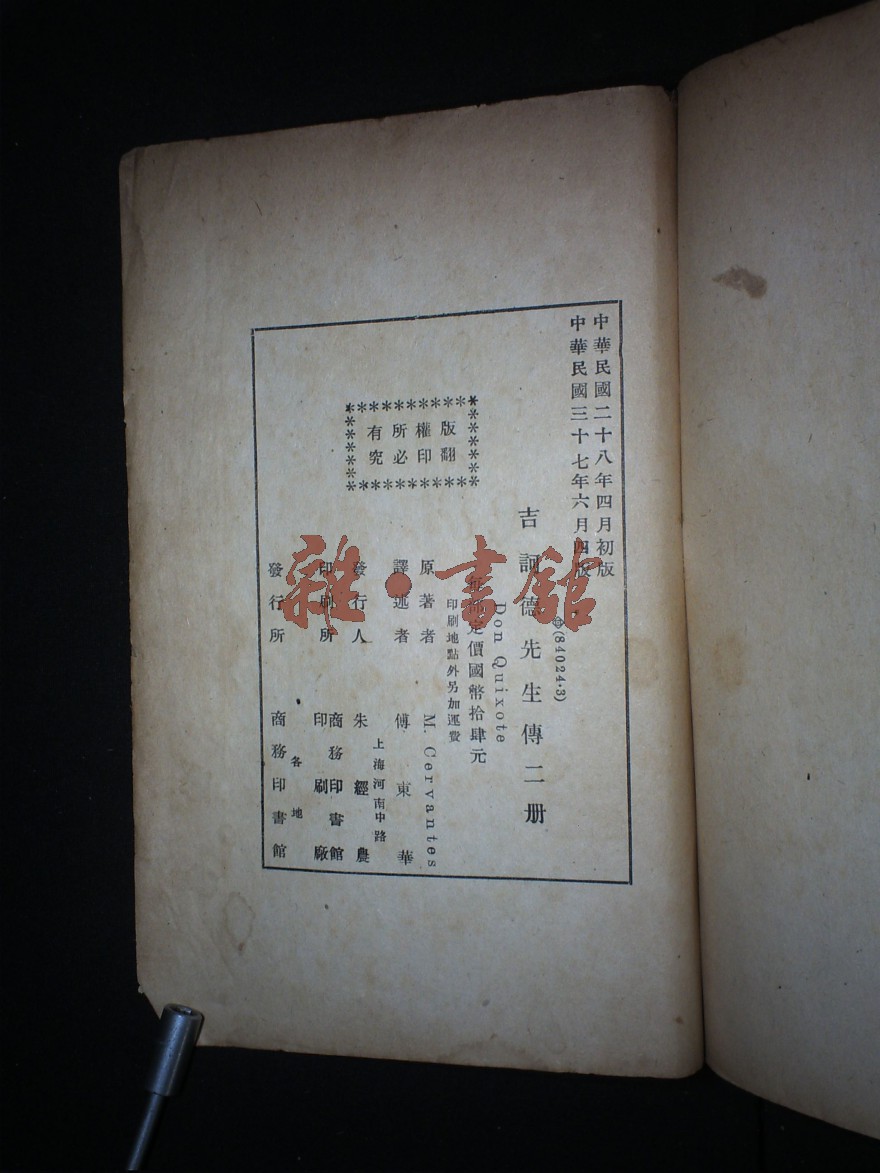 中華民國二十八年四月初版
中華民國三十七年六月四版
(84024·3)
吉訶德先生傳二册
Don Quixote
定價國幣拾肆元
印刷地點外另加運費
版權所有
翻印必究
原著者 M. Cervantes
譯述者 傅東華
發行人 朱經農
上海河南中路
印刷所 商務印書館印刷廠
各地
發行所 商務印書館
雜·書館